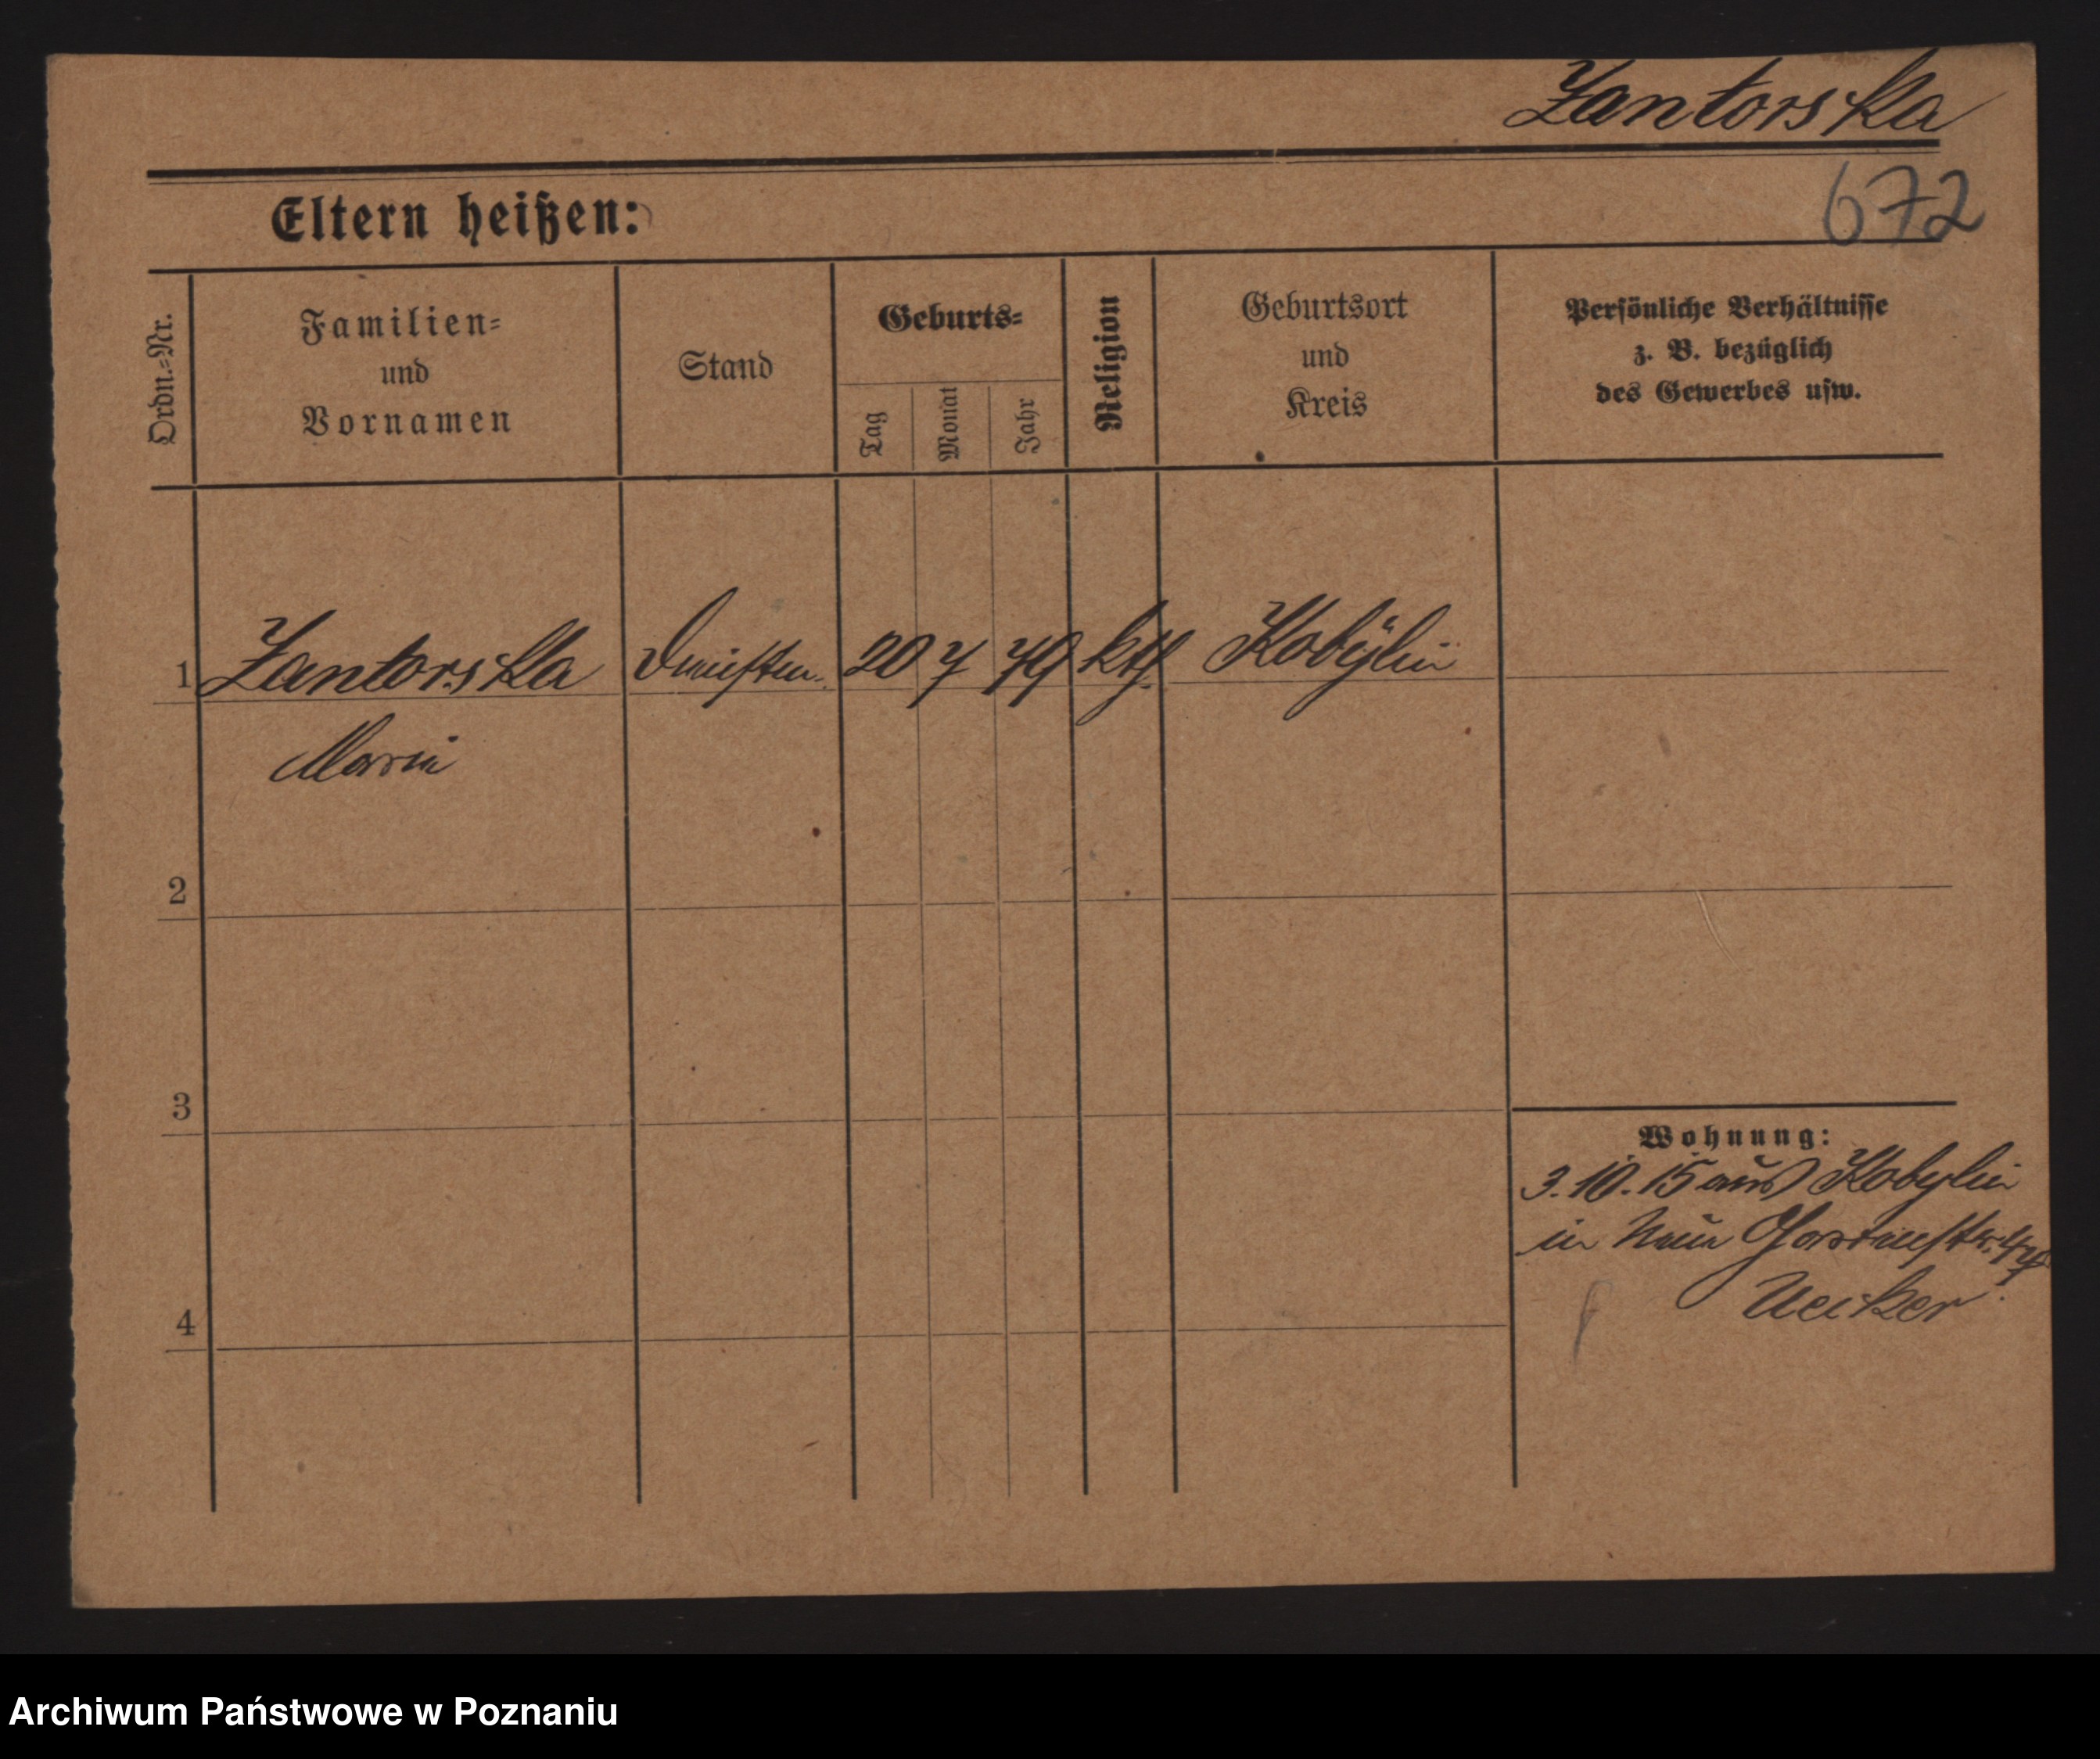 Zantorska
672
Eltern heißen:
Ordn.=Nr.
Familien=
und
Vornamen
Stand
Geburts=
Tag
Monat
Jahr
Religion
Geburtsort
und
Kreis
Persönliche Verhältnisse
z. B. bezüglich
des Gewerbes usw.
1 Zantorska 20 7 79 kth. Kobylin
Maria
2
3
4
Wohnung:
3.10.15 aus Kobylin
in Neue Gartenstr.
Uecker
Archiwum Państwowe w Poznaniu